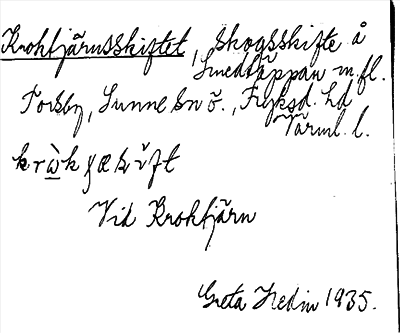 Krokfjärusskiftet, skogsskifte å
Smedtäppan m.fl.
Torsby, Sunne sn ö., Fryksd. hd
Värml. l.
Vid Krokfjärn
Greta Hedin 1935.